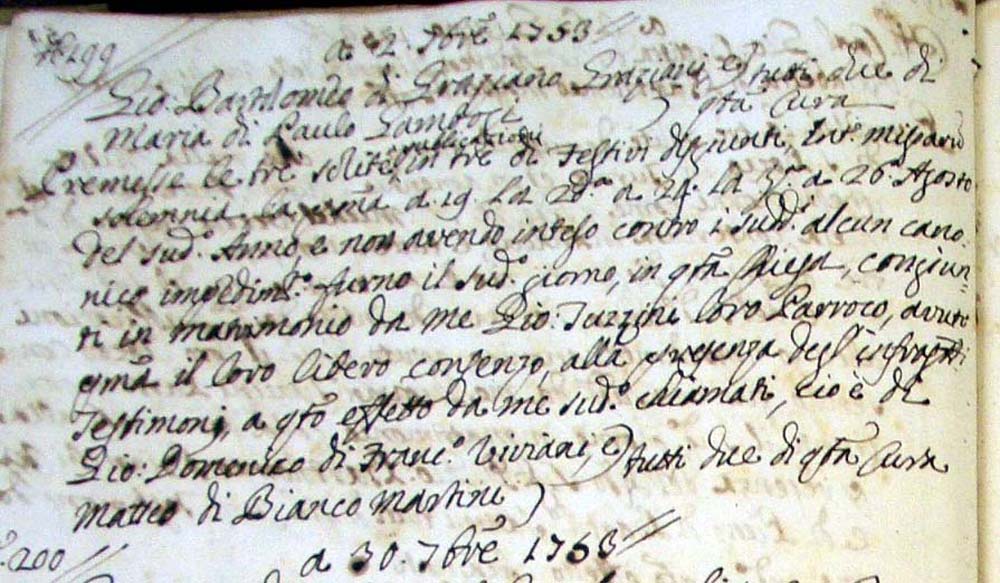 N. 199
a 2. 7bre 1753
Gio: Bartolomeo di Graziano Graziani e) tutti due di
Maria di Paulo ) qsta Cura
Premesse le tre solite pubblicazioni in tre dì festivi disgiunti, int. missarum
solemnia la pma a 19. la 2da a 24. la 3za a 26 Agosto
del sudo. Anno, e non avendo inteso contro i sudi. alcun cano-
nico impedimto. furno il sudo. giorno, in qsta Chiesa, congiun-
ti in matrimonio da me Gio: Tuzzini loro Parroco, avuto
pma il loro libero consenzo, alla presenza degl'infrapti
Testimonj, a qsto effetto da me sudo. chiamati, cioè di
Gio: Domenico di Franco. Viviani, e) tutti due di qsta Cura
Matteo di Bianco Martini )
200
a 30. 7bre 1753